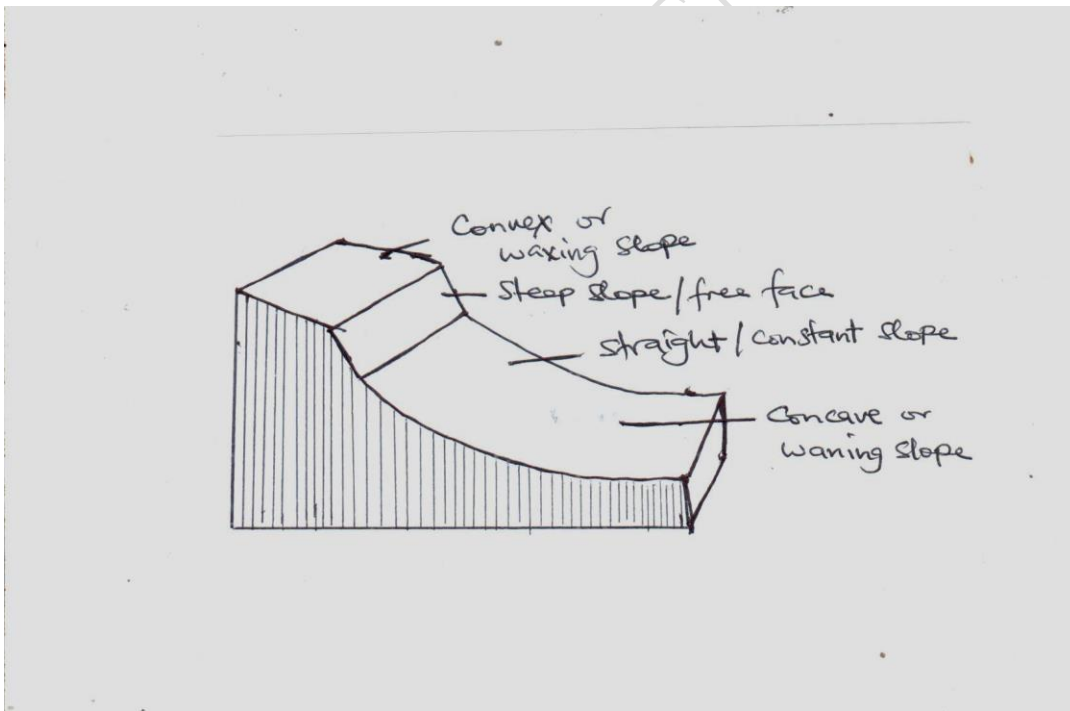 Convex or
waxing slope
Steep slope/free face
straight/constant slope
Concave or
waning slope